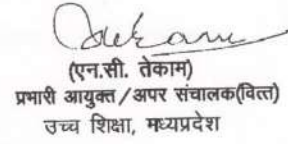 (एन.सी. तेकाम)
प्रभारी आयुक्त/अपर संचालक(वित्त)
उच्च शिक्षा, मध्यप्रदेश